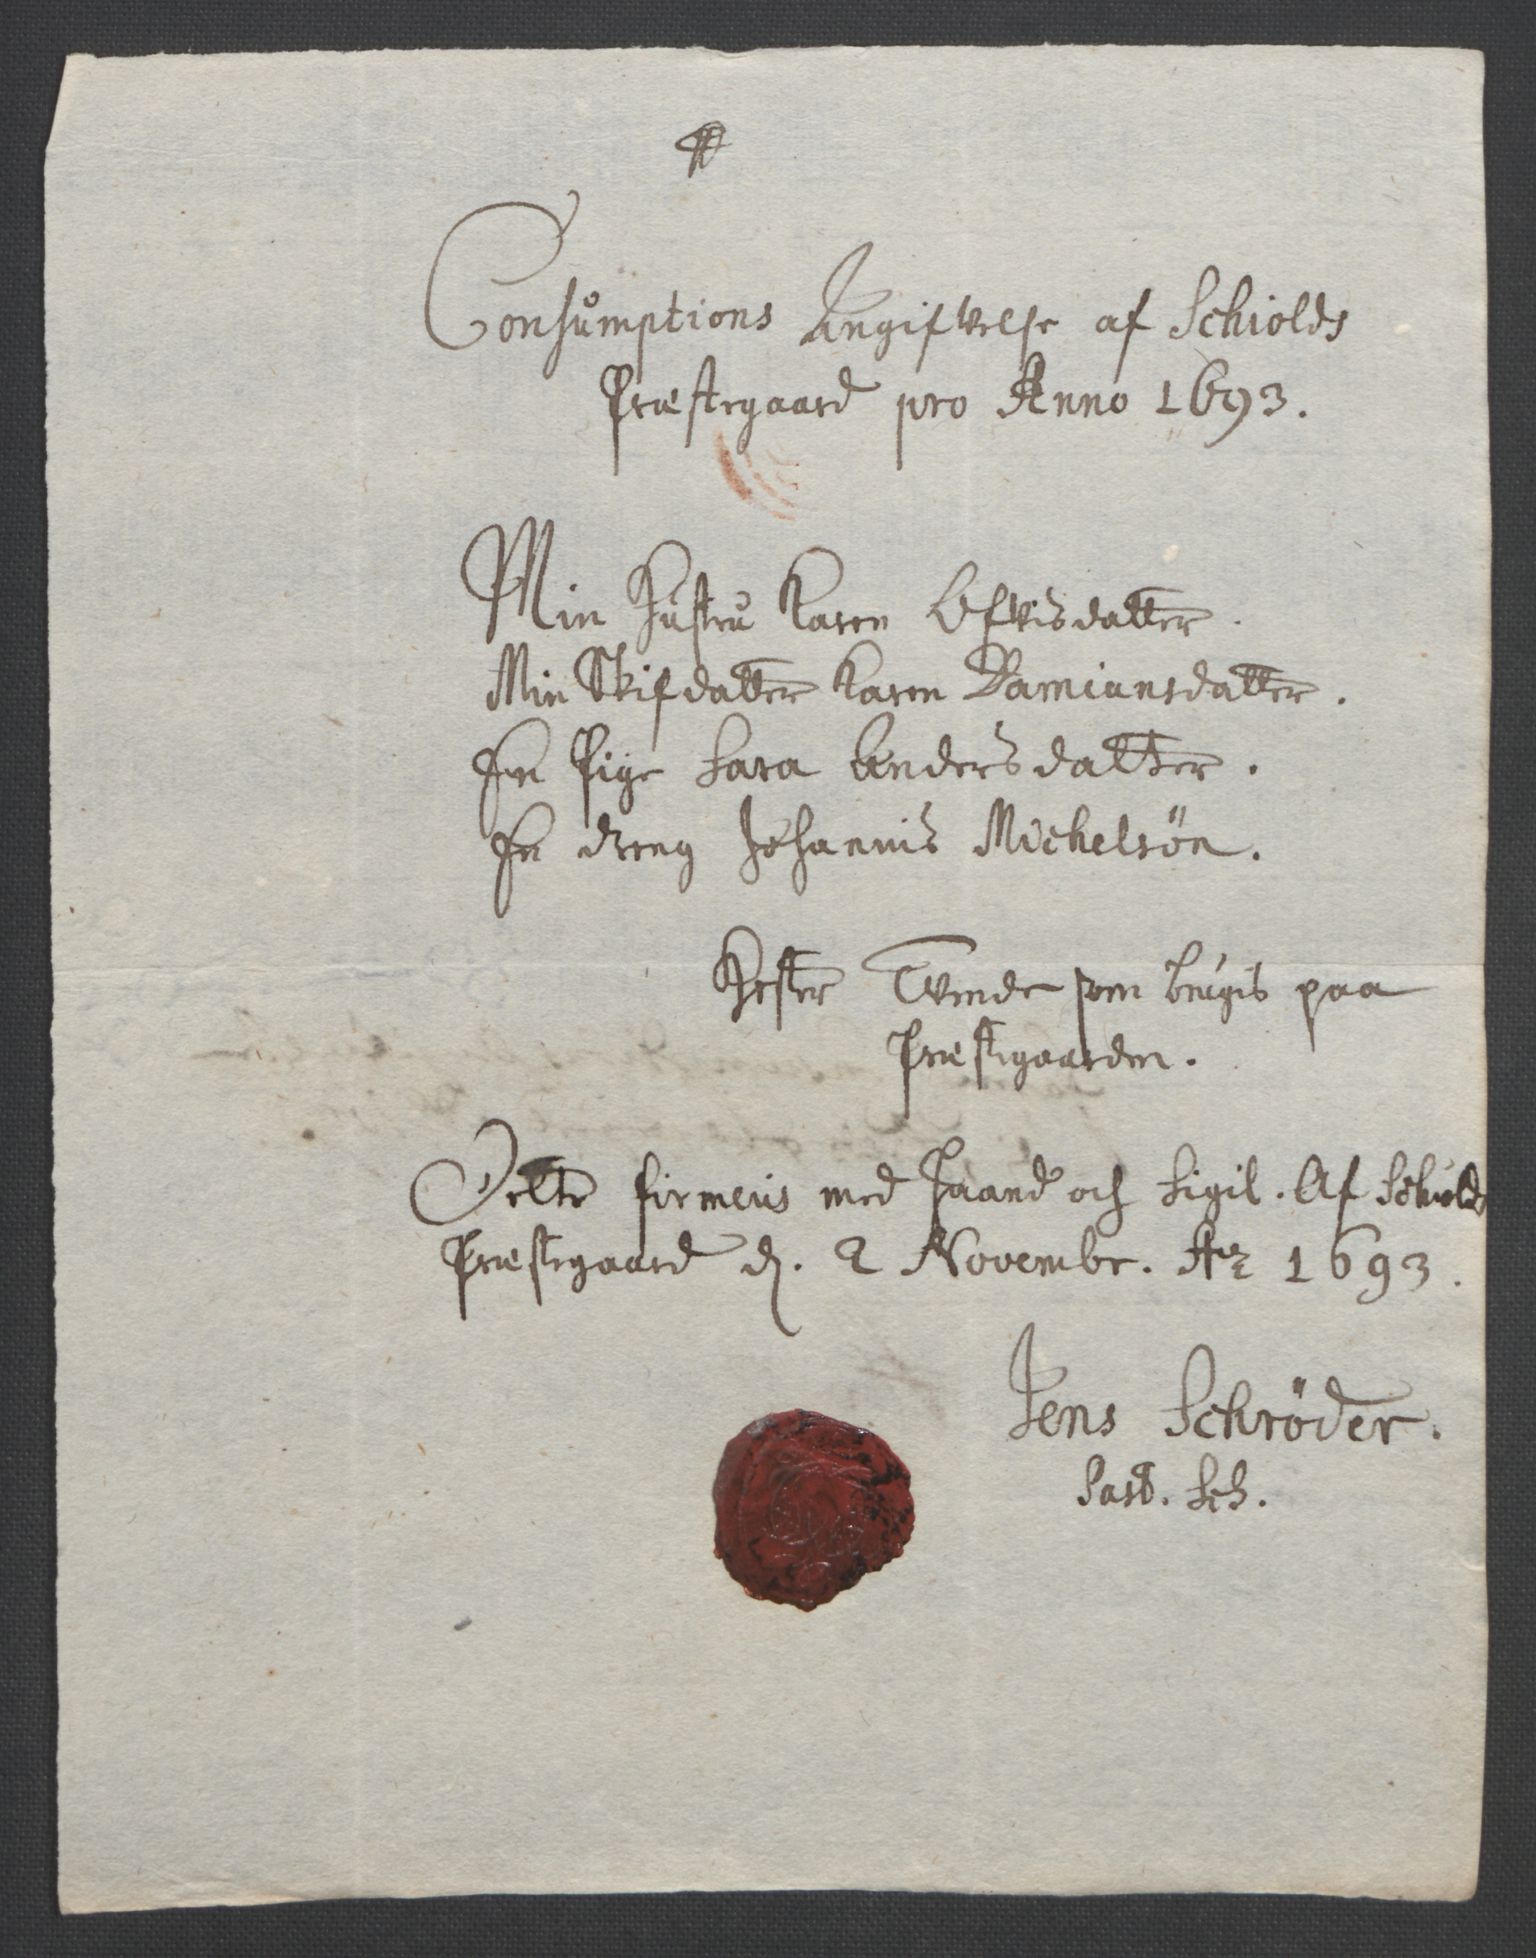 Consumptions Angifvelse af Schiolds
Præstegaard pro Anno 1693.
Min Hustru Karen
Min Stifdatter Karen Damiansdatter.
En Pige Sara Andersdatter.
En dreng Johannis Michelsön.
Hester Tvende som brugis paa
Præstegaarden.
Dette firmeris med Haand och Sigil. Af Schiolds
Præstegaard d. 2 Novembr. Ao 1693.
Jens Schröder.
Past. Sch.